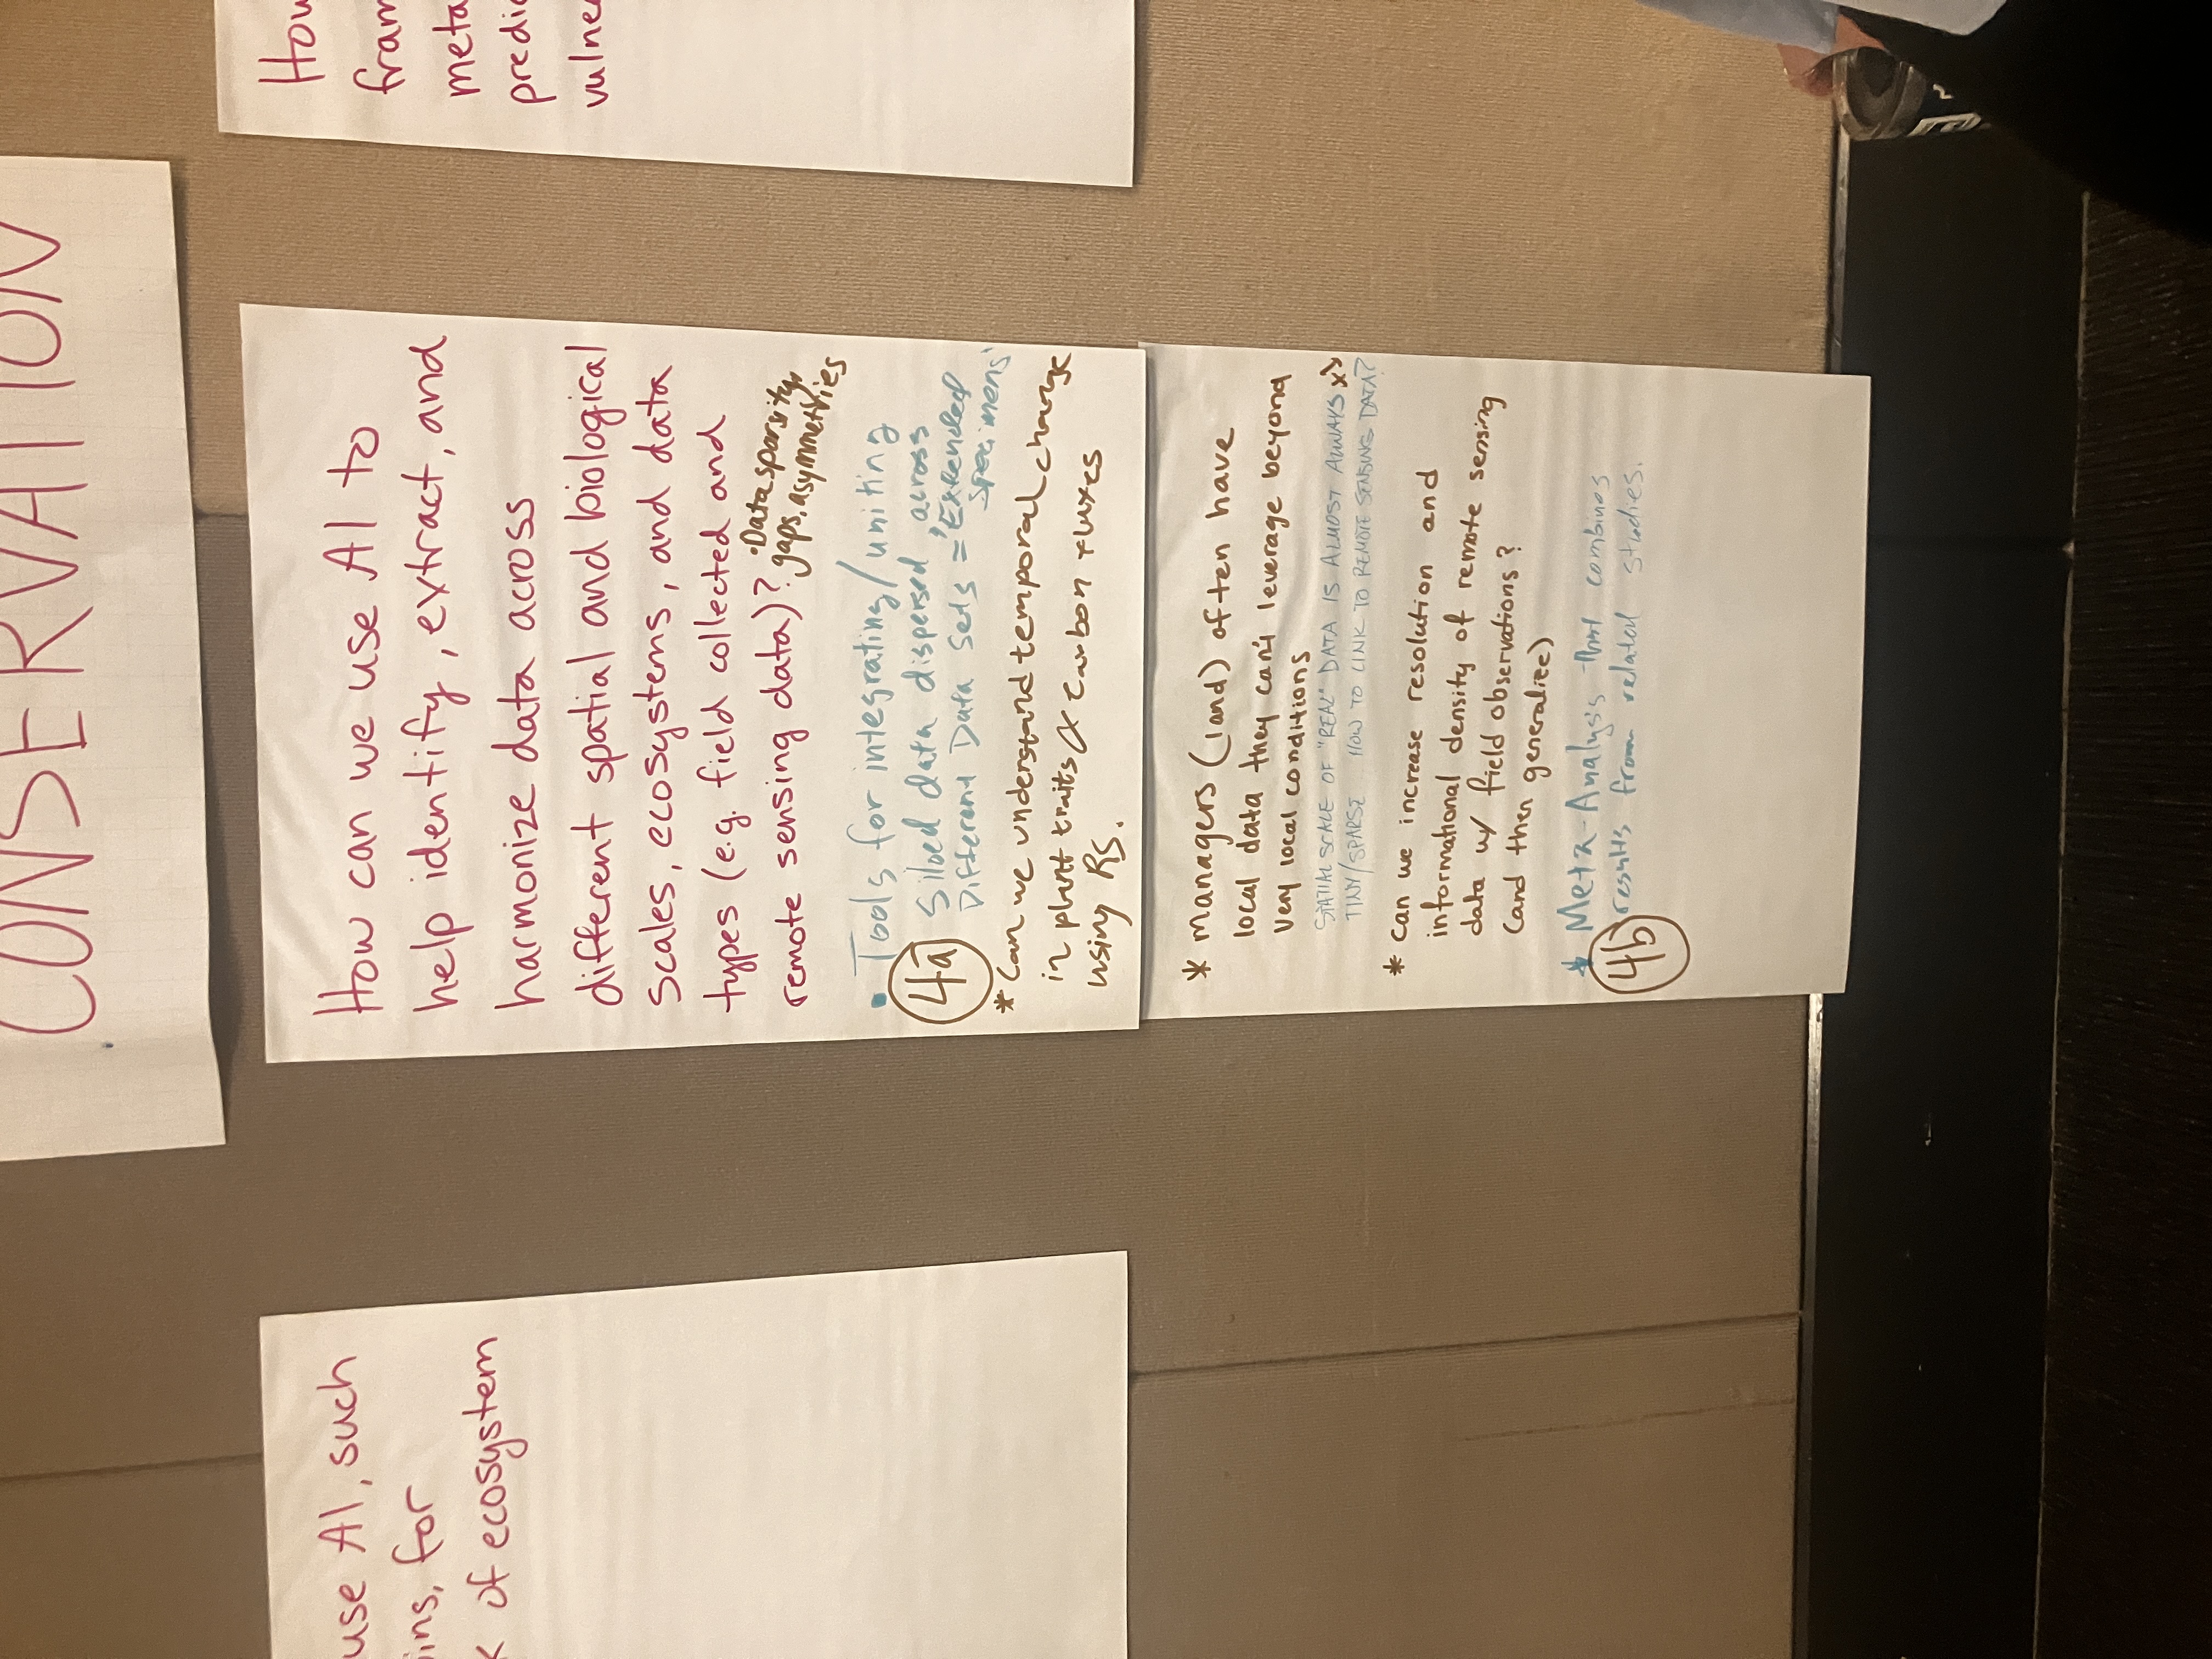 CONSERVATION
use AI, such
ins, for
of ecosystem
How can we use AI to
help identify, extract, and
harmonize data across
different spatial and biological
scales, ecosystems, and data
types (e.g. field collected and
remote sensing data)?
• Data sparsity,
gaps, asymmetries
• Tools for integrating/uniting
Siloed data dispersed across
Different Data sets = "Extended
Specimens"
4a
* Can we understand temporal change
in plant traits & carbon fluxes
using RS.
* managers (land) often have
local data they can't leverage beyond
very local conditions
SPATIAL SCALE OF "REAL" DATA IS ALMOST ALWAYS
TINY/SPARSE. HOW TO LINK TO REMOTE SENSING DATA?
* can we increase resolution and
informational density of remote sensing
data w/ field observations?
(and then generalize)
* Meta-Analysis that combines
results from related studies.
4b
How
fram
meta
predic
vulne